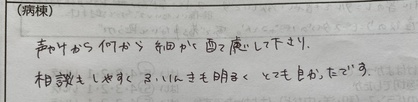 (病棟)
声かけから何から細かく配慮して下さり、
相談もしやすくふんいきも明るくとても良かったです。